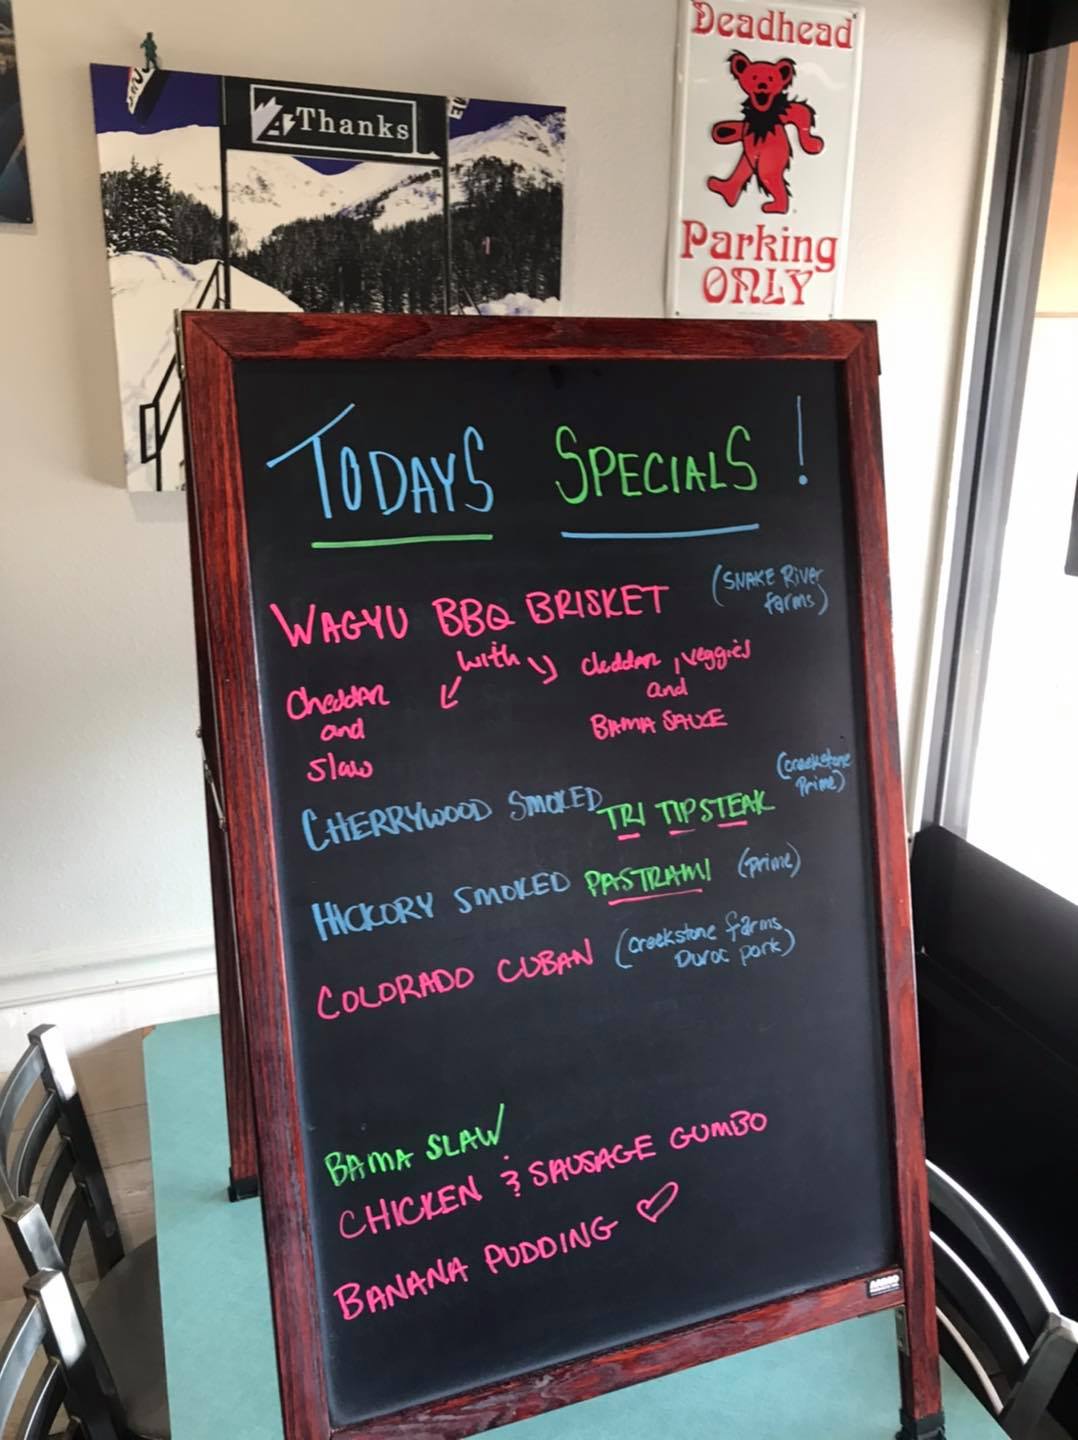 Thanks
Deadhead
Parking
ONLY
TODAYS SPECIALS !
WAGYU BBQ BRISKET (SNAKE RIVER farms)
with
Cheddar and slaw
cheddar, veggies and BAMA SAUCE
CHERRYWOOD SMOKED TRI TIP STEAK (Creekstone Prime)
HICKORY SMOKED PASTRAMI (prime)
COLORADO CUBAN (Creekstone farms Duroc pork)
BAMA SLAW
CHICKEN & SAUSAGE GUMBO
BANANA PUDDING ♡